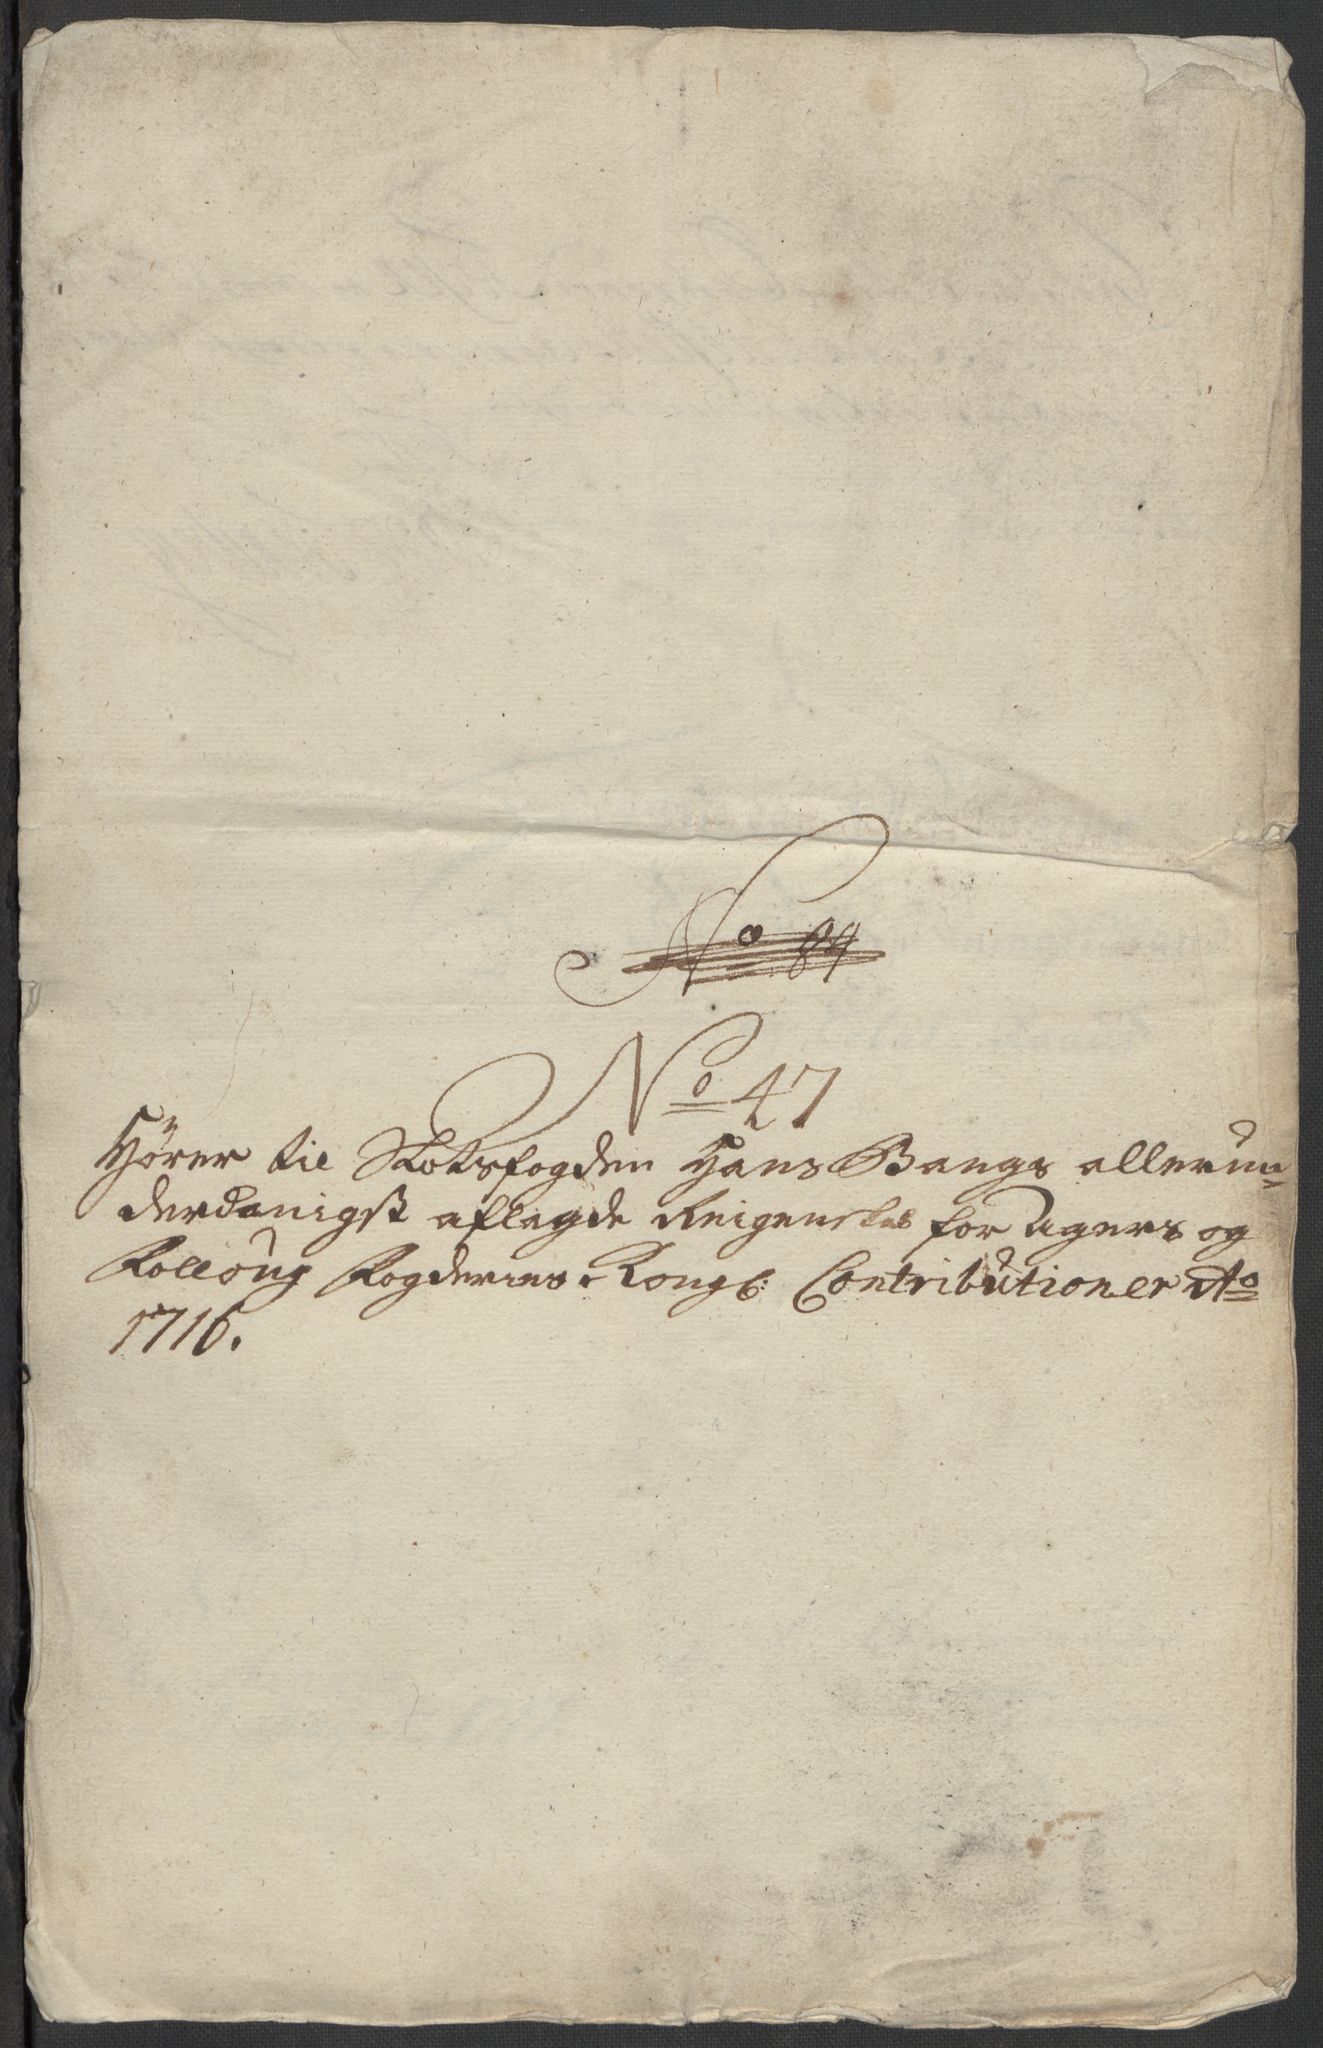 No 84
No 47
Hører til Slotsfogden Hans Bangs allerun-
derdanigst aflagde Reigenskab for Agers og
Folloug Fogderies Kongl: Contributioner Ao
1716.